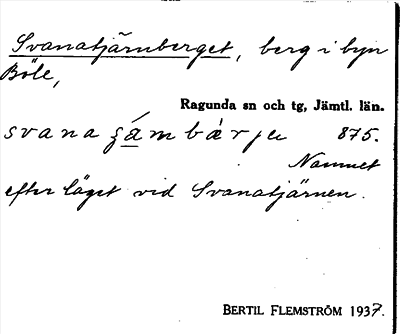 Svanatjärnberget, berg i byn
Böle,
Ragunda sn och tg, Jämtl. län.
875.
Namnet
efter läget vid Svanatjärnen.
BERTIL FLEMSTRÖM 1937.